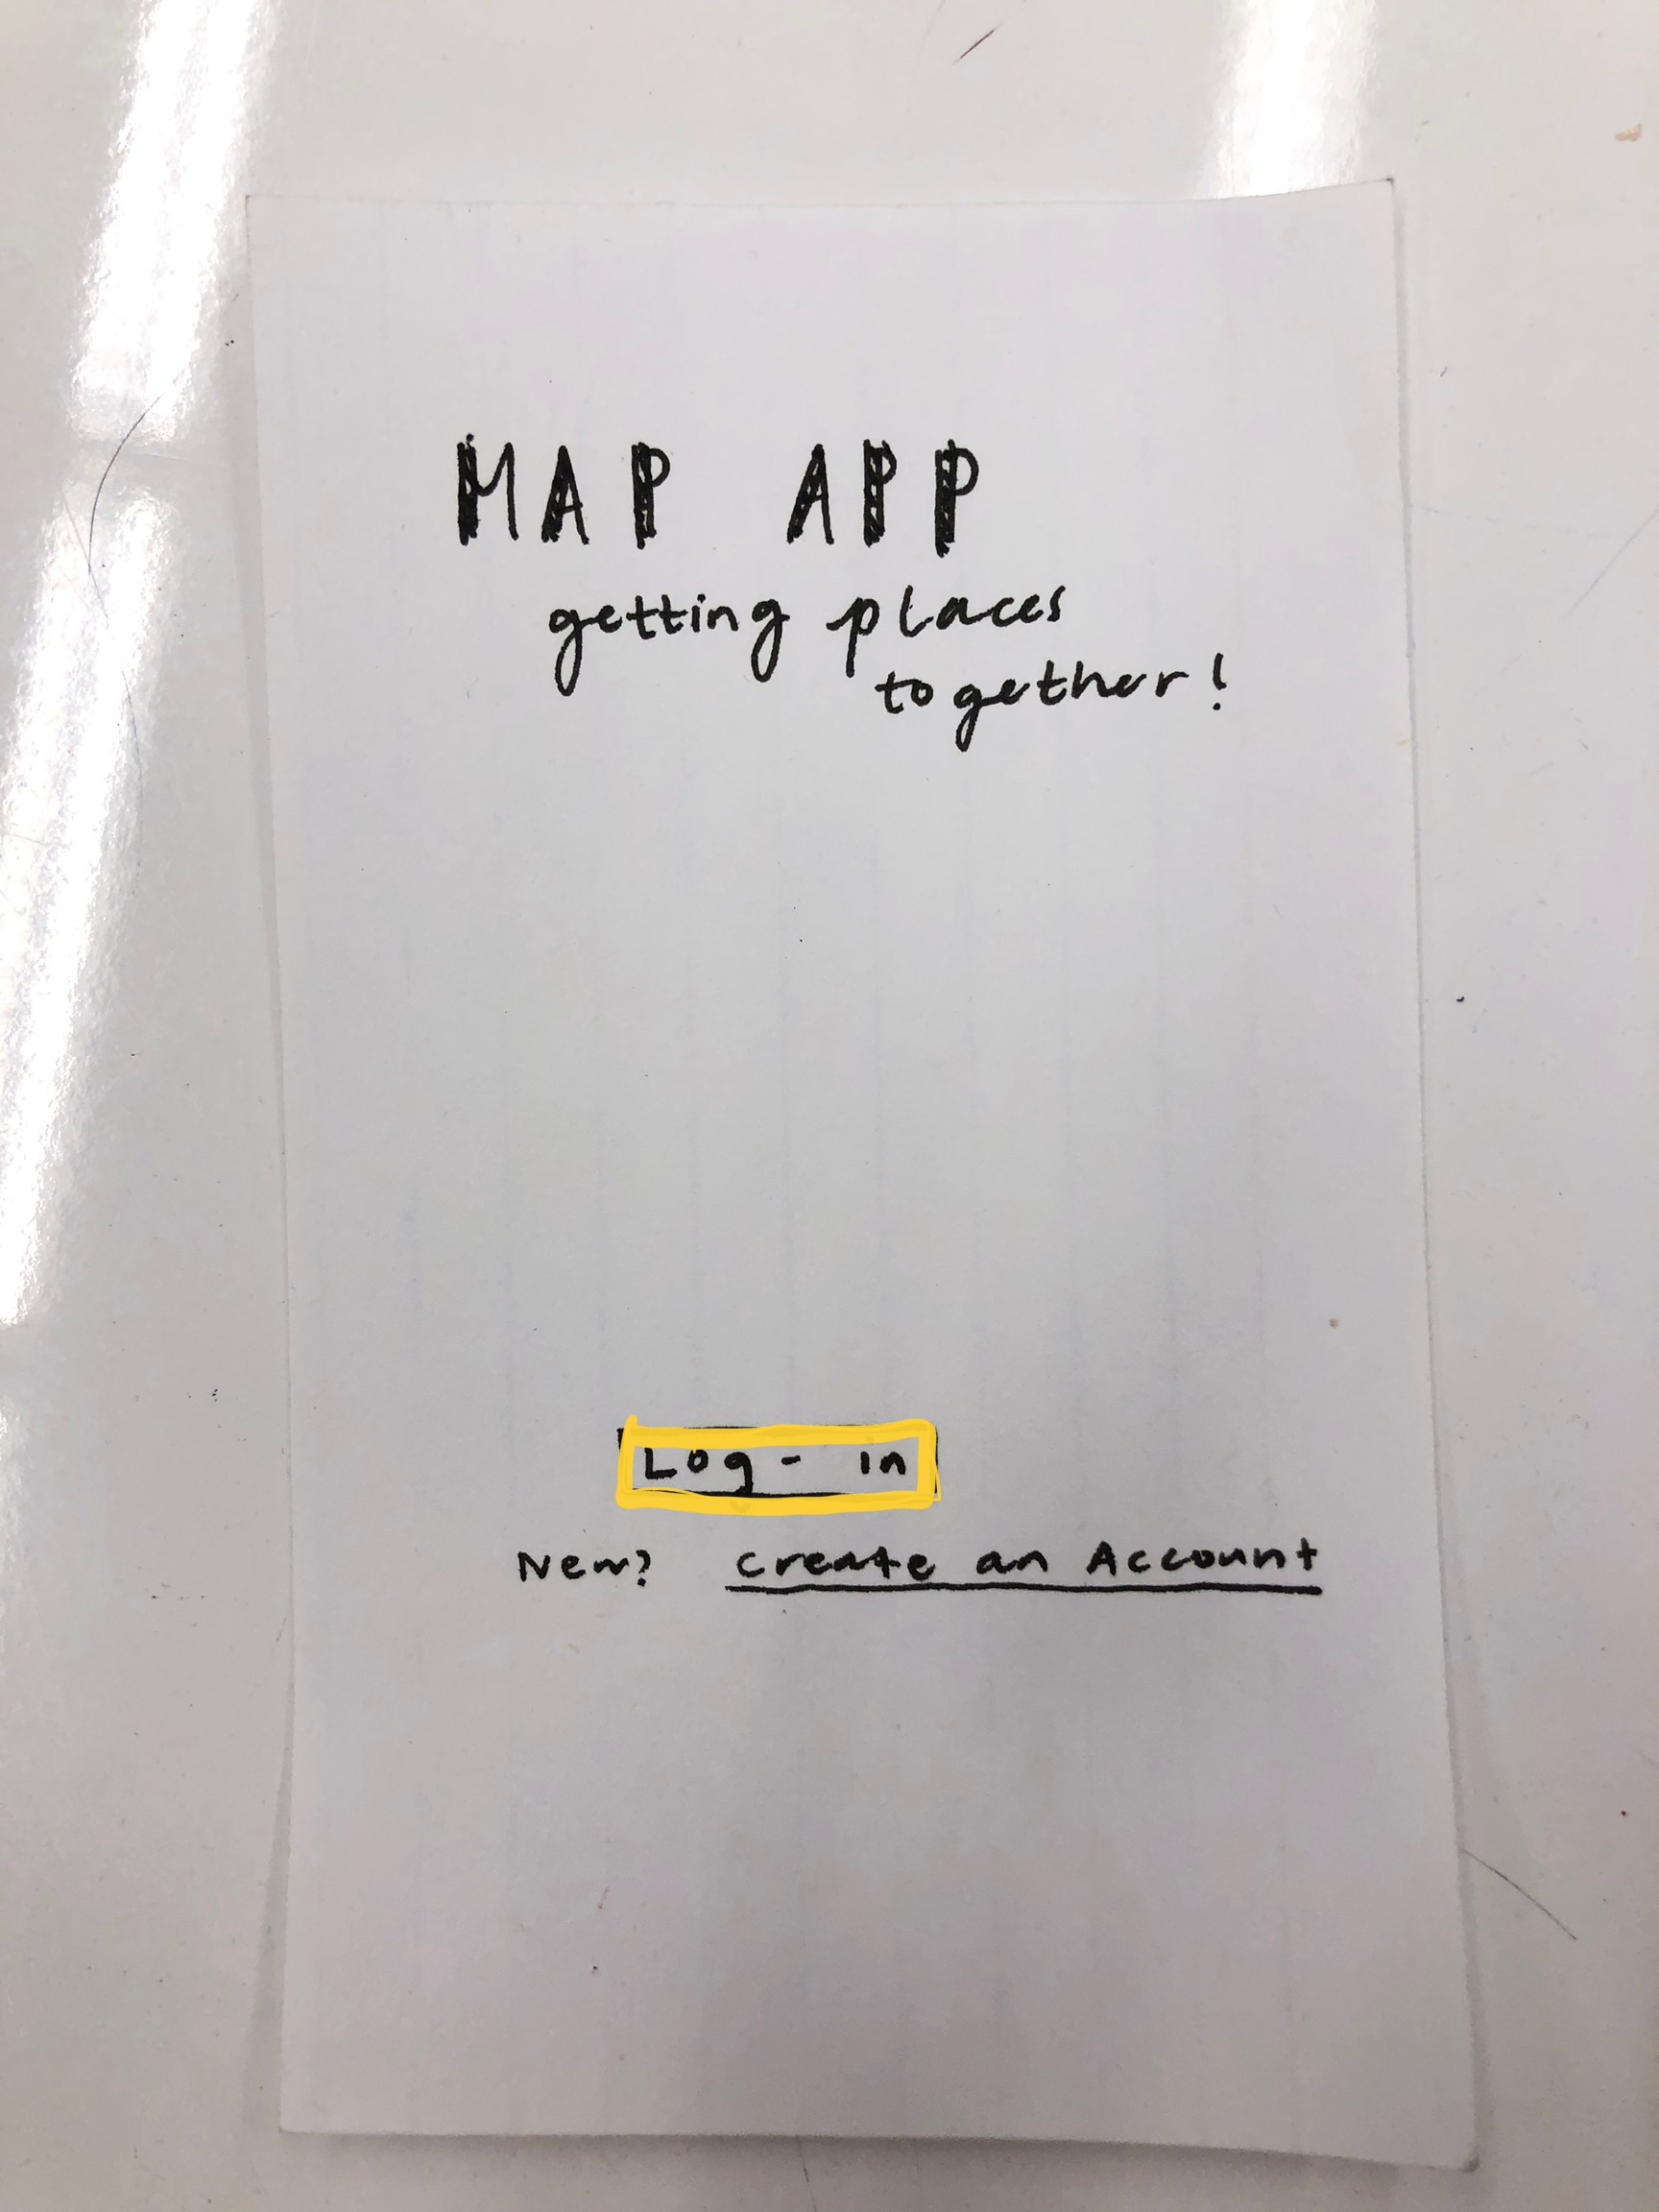 MAP APP
getting places
together!
Log - in
New? Create an Account